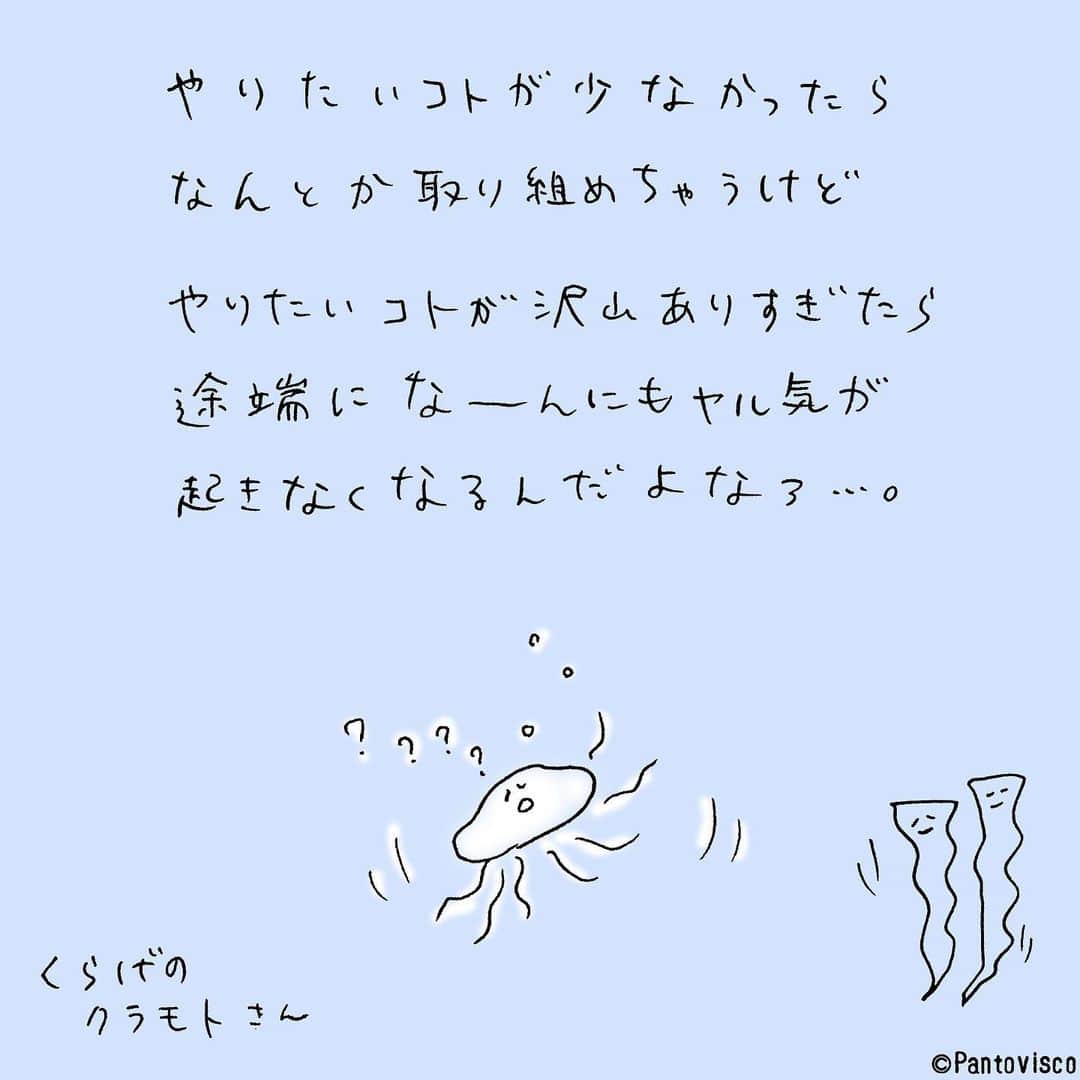 やりたいコトが少なかったら
なんとか取り組めちゃうけど
やりたいコトが沢山ありすぎたら
途端になーんにもヤル気が
起きなくなるんだよなァ…。
? ? ? ?
くらげの
クラモトさん
©Pantovisco